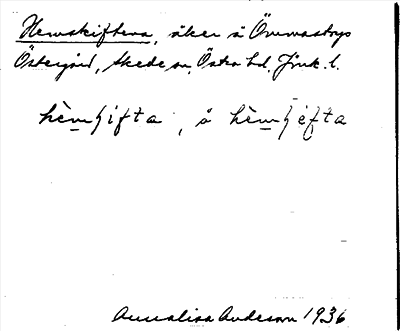 Hemskiftena, åker å Övrarastorps
Östergård, Skede sn, Östra hd, Jönk. l.
hèmʃifta, å hèmʃefta
Annalisa Anderson 1936